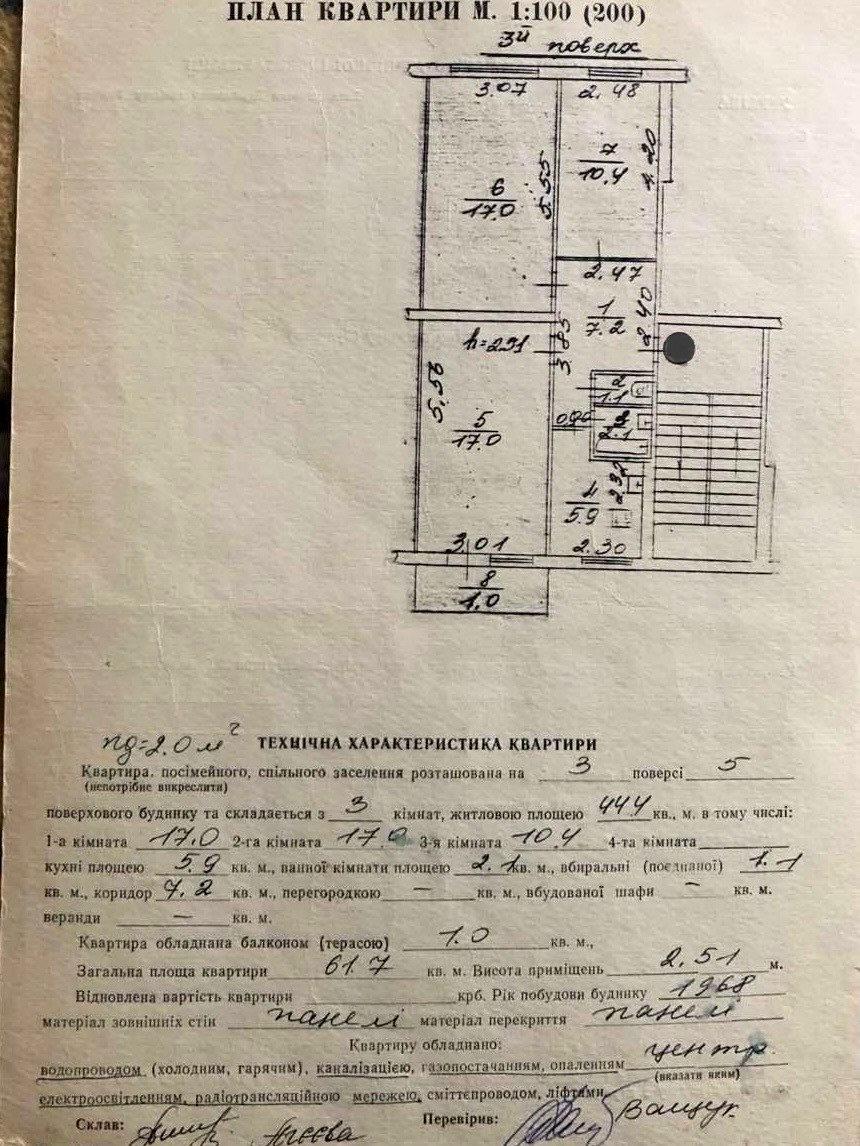 ПЛАН КВАРТИРИ М. 1:100 (200)
3й поверх
3.07 2.48
6
17.0
5.55
7
10.4
4.20
2.47
1
7.2
2.40
3.85
h=2.51
2
1.1
5.56
5
17.0
0.90
3
2.1
4
5.9
2.32
3.01 2.30
8
1.0
пд=2.0 м²
ТЕХНІЧНА ХАРАКТЕРИСТИКА КВАРТИРИ
Квартира. посімейного, спільного заселення розташована на 3 поверсі 5
(непотрібне викреслити)
поверхового будинку та складається з 3 кімнат, житловою площею 44.4 кв., м. в тому числі:
1-а кімната 17.0 2-га кімната 17.0 3-я кімната 10.4 4-та кімната
кухні площею 5.9 кв. м., ванної кімнати площею 2.1 кв. м., вбиральні (поєднаної) 1.1
кв. м., коридор 7.2 кв. м., перегородкою — кв. м., вбудованої шафи — кв. м.
веранди — кв. м.
Квартира обладнана балконом (терасою) 1.0 кв. м.,
Загальна площа квартири 61.7 кв. м. Висота приміщень 2.51 м.
Відновлена вартість квартири крб. Рік побудови будинку 1968
матеріал зовнішніх стін панелі матеріал перекриття панелі
Квартиру обладнано:
водопроводом (холодним, гарячим), каналізацією, газопостачанням, опаленням центр.
(вказати яким)
електроосвітленням, радіотрансляційною мережею, сміттєпроводом, ліфтами.
Склав: Перевірив: Ващук